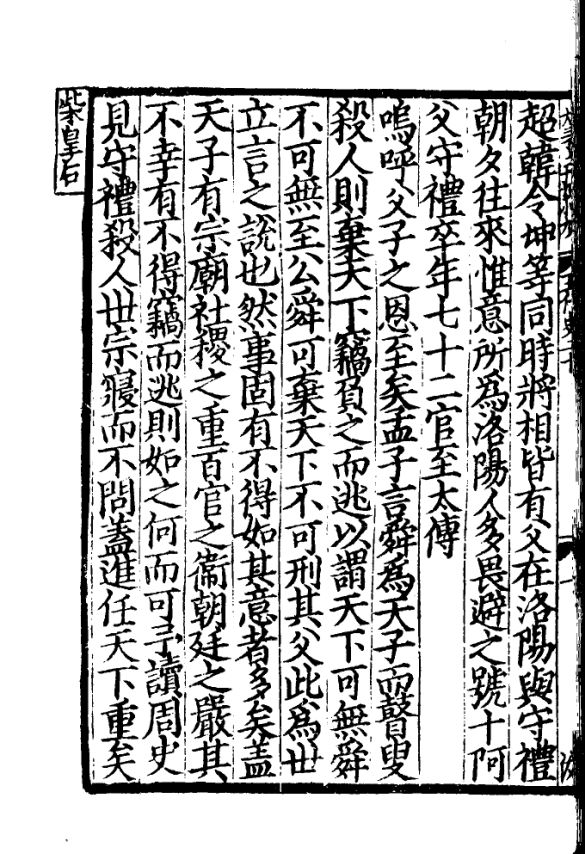 超韓令坤等同時將相皆有父在洛陽與守禮
朝夕往來惟意所爲洛陽人多畏避之號十阿
父守禮卒年七十二官至太傅
嗚呼父子之恩至矣孟子言舜爲天子而瞽叟
殺人則棄天下竊負之而逃以謂天下可無舜
不可無至公舜可棄天下不可刑其父此爲世
立言之說也然事固有不得如其意者多矣蓋
天子有宗廟社稷之重百官之衞朝廷之嚴其
不幸有不得竊而逃則如之何而可予讀周史
見守禮殺人世宗寢而不問蓋進任天下重矣
柴皇后